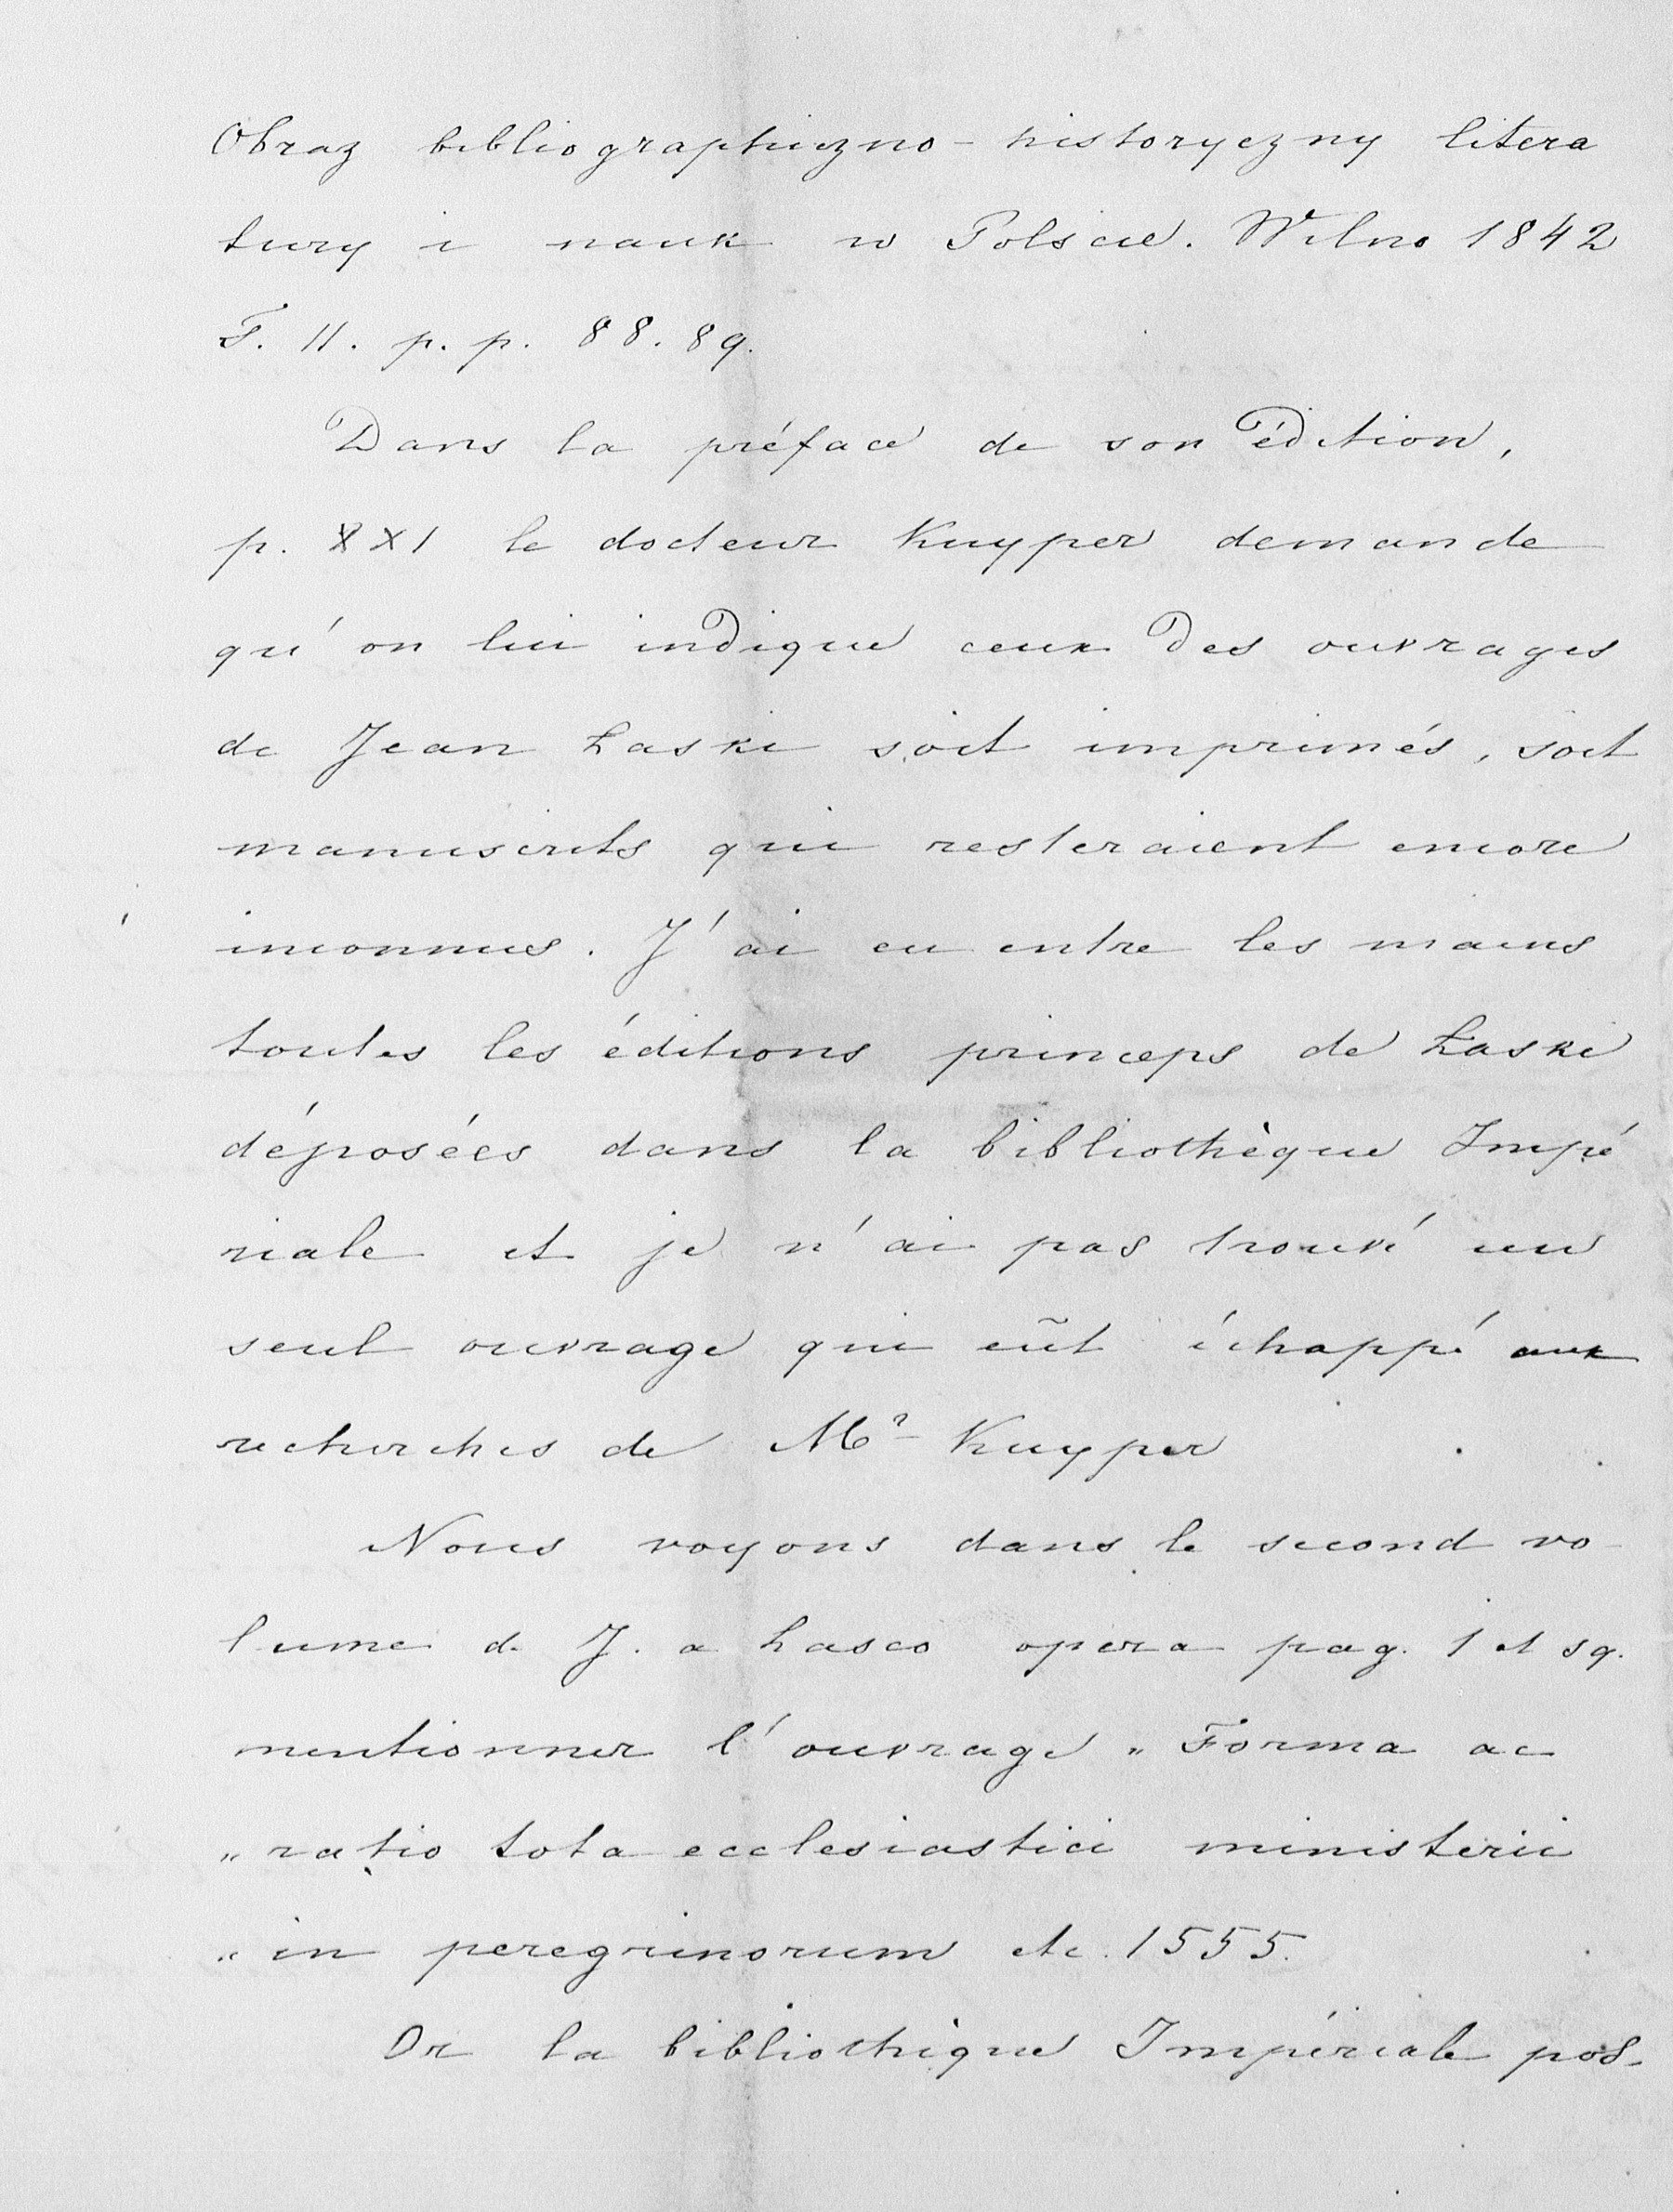 Obraz bibliographiczno-historyczny litera
tury i nauk w Polsce. Wilno 1842
T. II. p. p. 88. 89.
Dans la préface de son édition,
p. XXI le docteur Kuyper demande
qu'on lui indique ceux des ouvrages
de Jean Łaski soit imprimés, soit
manuscrits qui resteraient encore
inconnus. J'ai eu entre les mains
toutes les éditions princeps de Łaski
déposées dans la bibliothèque Impé
riale et je n'ai pas trouvé un
seul ouvrage qui eût échappé aux
recherches de Mr Kuyper
Nous voyons dans le second vo
lume de J. a Lasco opera pag. 1 et sq.
mentionner l'ouvrage „Forma ac
„ratio tota ecclesiastici ministerii
„in peregrinorum etc. 1555.
Or la bibliothèque Impériale pos-